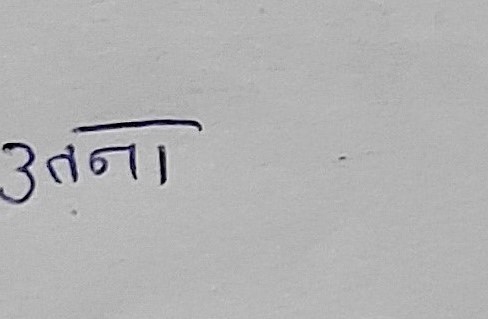 उतना